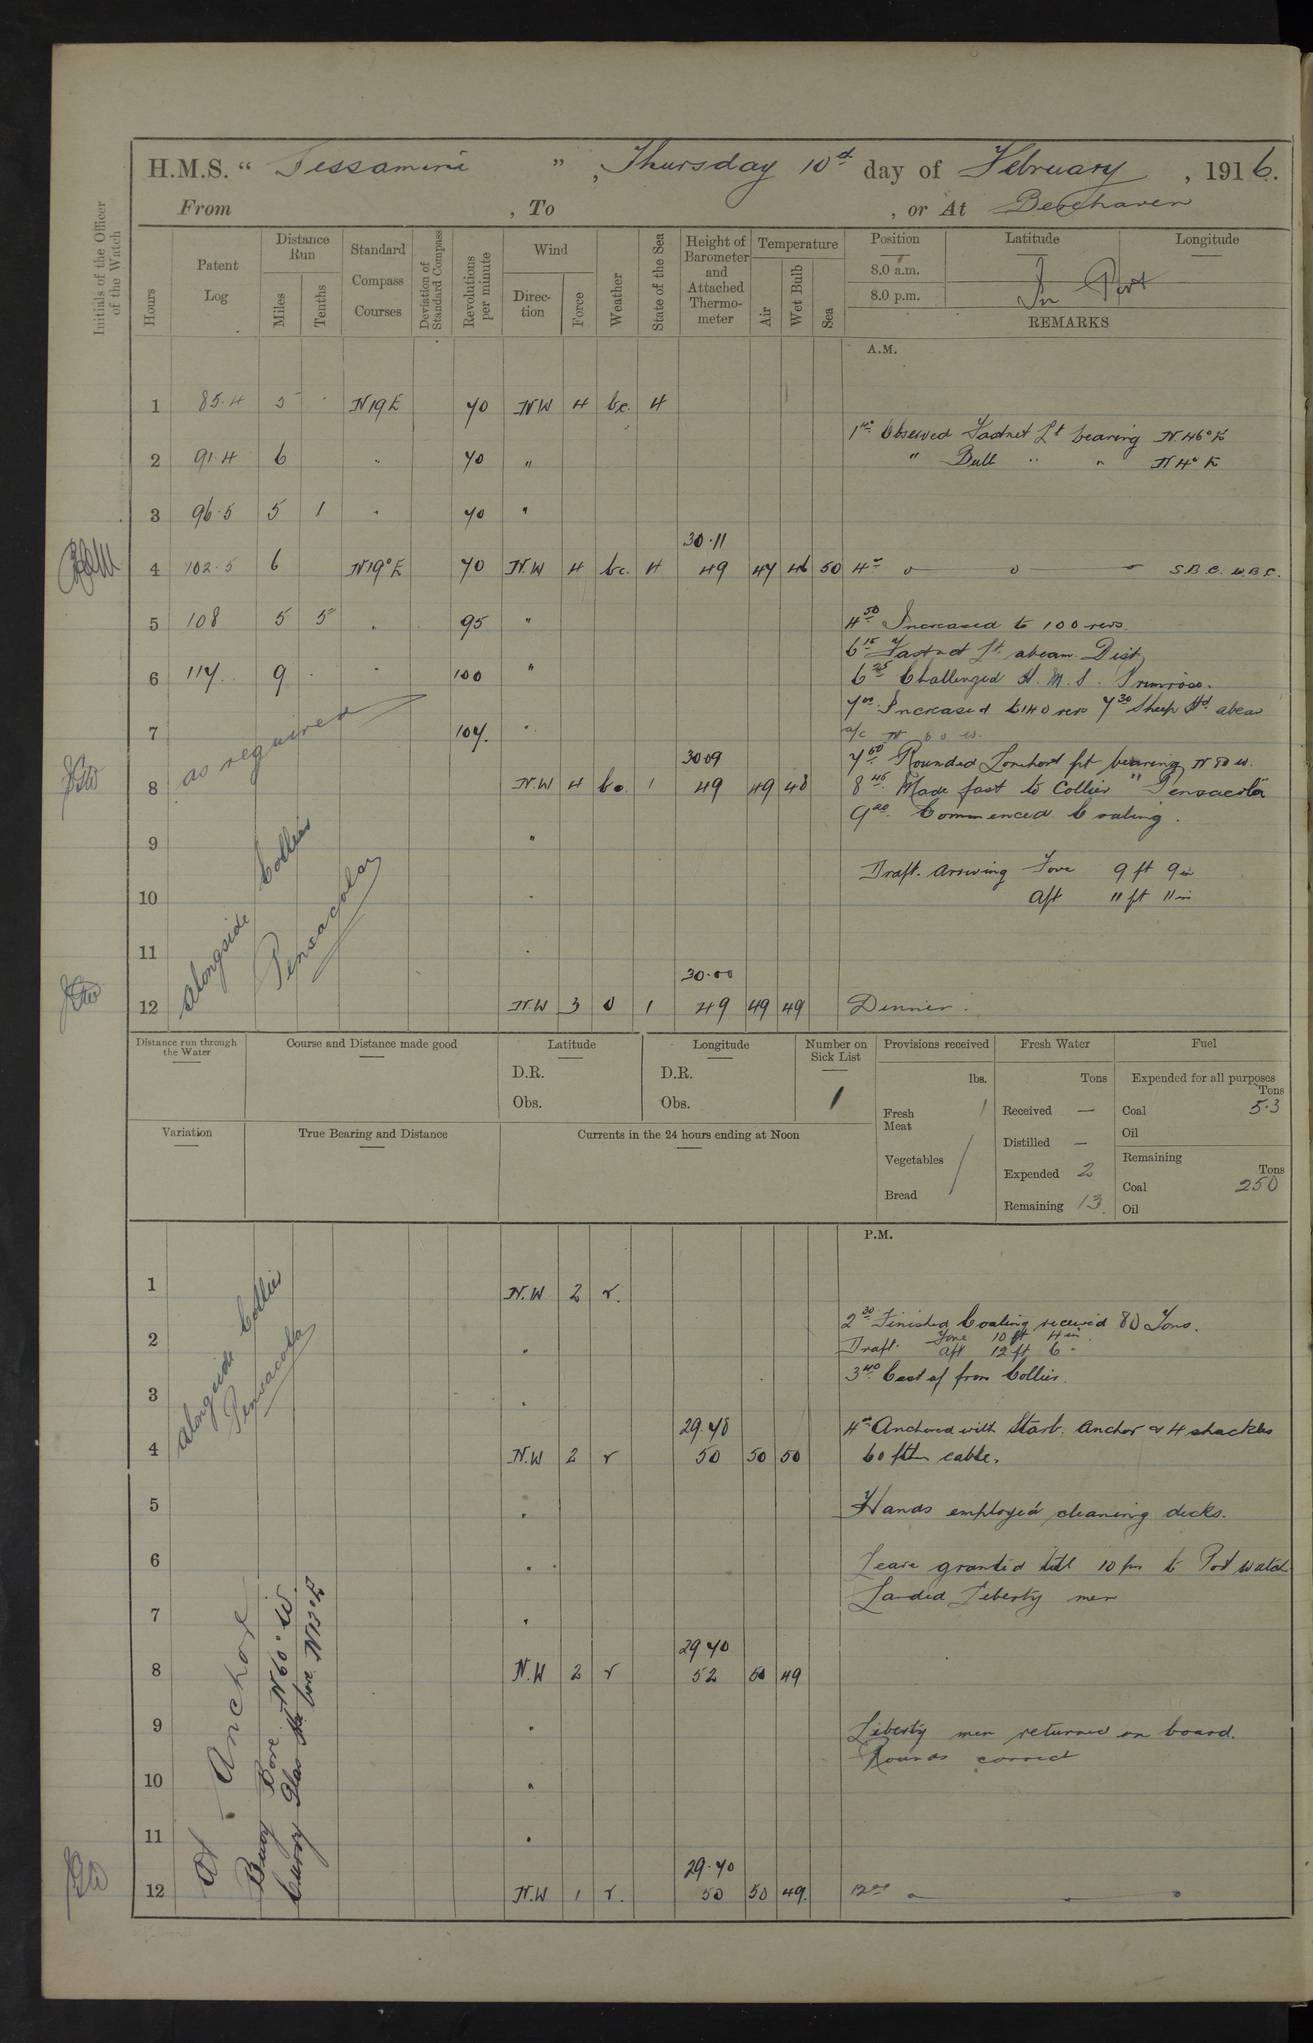 H.M.S. “ Jessamine ”, Thursday 10th day of February, 1916.
From , To , or At Berehaven
Initials of the Officer of the Watch
Hours
Patent Log
Distance Run
Miles
Tenths
Standard Compass Courses
Deviation of Standard Compass
Revolutions per minute
Wind
Direction
Force
Weather
State of the Sea
Height of Barometer and Attached Thermometer
Temperature
Air
Wet Bulb
Sea
Position
Latitude
Longitude
8.0 a.m.
8.0 p.m.
In Port
REMARKS
A.M.
1 85.4 5 · N19E 70 NW 4 bc. 4
1 Observed Fastnet Lt bearing N.46°E
" Bull " " N4°E
2 91.4 6 " 70 "
3 96.5 5 1 " 70 "
30.11
4 102.5 6 N19°E 70 N.W 4 bc. 4 49 47 46 50 4 S.B.C. W.B.C.
5 108 5 5 " 95 "
4 50 Increased to 100 revs.
6 15 Fastnet Lt. abeam. Dist
6 117 9 · " 100 "
6 25 Challenged H.M.S. Primrose.
7 00 Increased to 140 revs 7 30 Sheep Hd. abea
7 as required 107. "
a/c N 60 W.
30.09
7 50 Rounded Lonehort pt bearing N80W.
8 N.W 4 bc. 1 49 49 48
8 45 Made fast to Collier "Pensacola"
9 00 Commenced Coaling.
9 "
Draft. arriving Fore 9 ft 9 in
10 "
Aft 11 ft 11 in
11 "
alongside Collier
Pensacola
30.00
12 N.W 3 0 1 49 49 49 Dinner.
Distance run through the Water
Course and Distance made good
Latitude
D.R.
Obs.
Longitude
D.R.
Obs.
Number on Sick List
1
Provisions received
lbs.
Fresh Meat
Vegetables
Bread
Fresh Water
Tons
Received —
Distilled —
Expended 2
Remaining 13.
Fuel
Expended for all purposes
Tons
Coal 5.3
Oil
Remaining
Tons
Coal 250
Oil
Variation
True Bearing and Distance
Currents in the 24 hours ending at Noon
P.M.
1 N.W 2 r.
2 30 Finished Coaling received 80 Tons.
2 "
Draft. Fore 10 ft 4 in
Aft 12 ft 6 "
3 40 Cast off from Collier.
3 "
alongside Collier
Pensacola
29.78
4 00 Anchored with Starb. Anchor & 4 shackles
4 N.W 2 r 50 50 50
60 fthm cable.
5 "
Hands employed cleaning decks.
6 "
Leave granted till 10 pm to Port watch
Landed Liberty men
7 "
29.70
8 N.W 2 r 52 50 49
9 "
Liberty men returned on board.
Rounds correct
10 "
11 "
At Anchor
Buoy Bore N60°W.
29.70
12 N.W 1 r. 50 50 49. 12 00